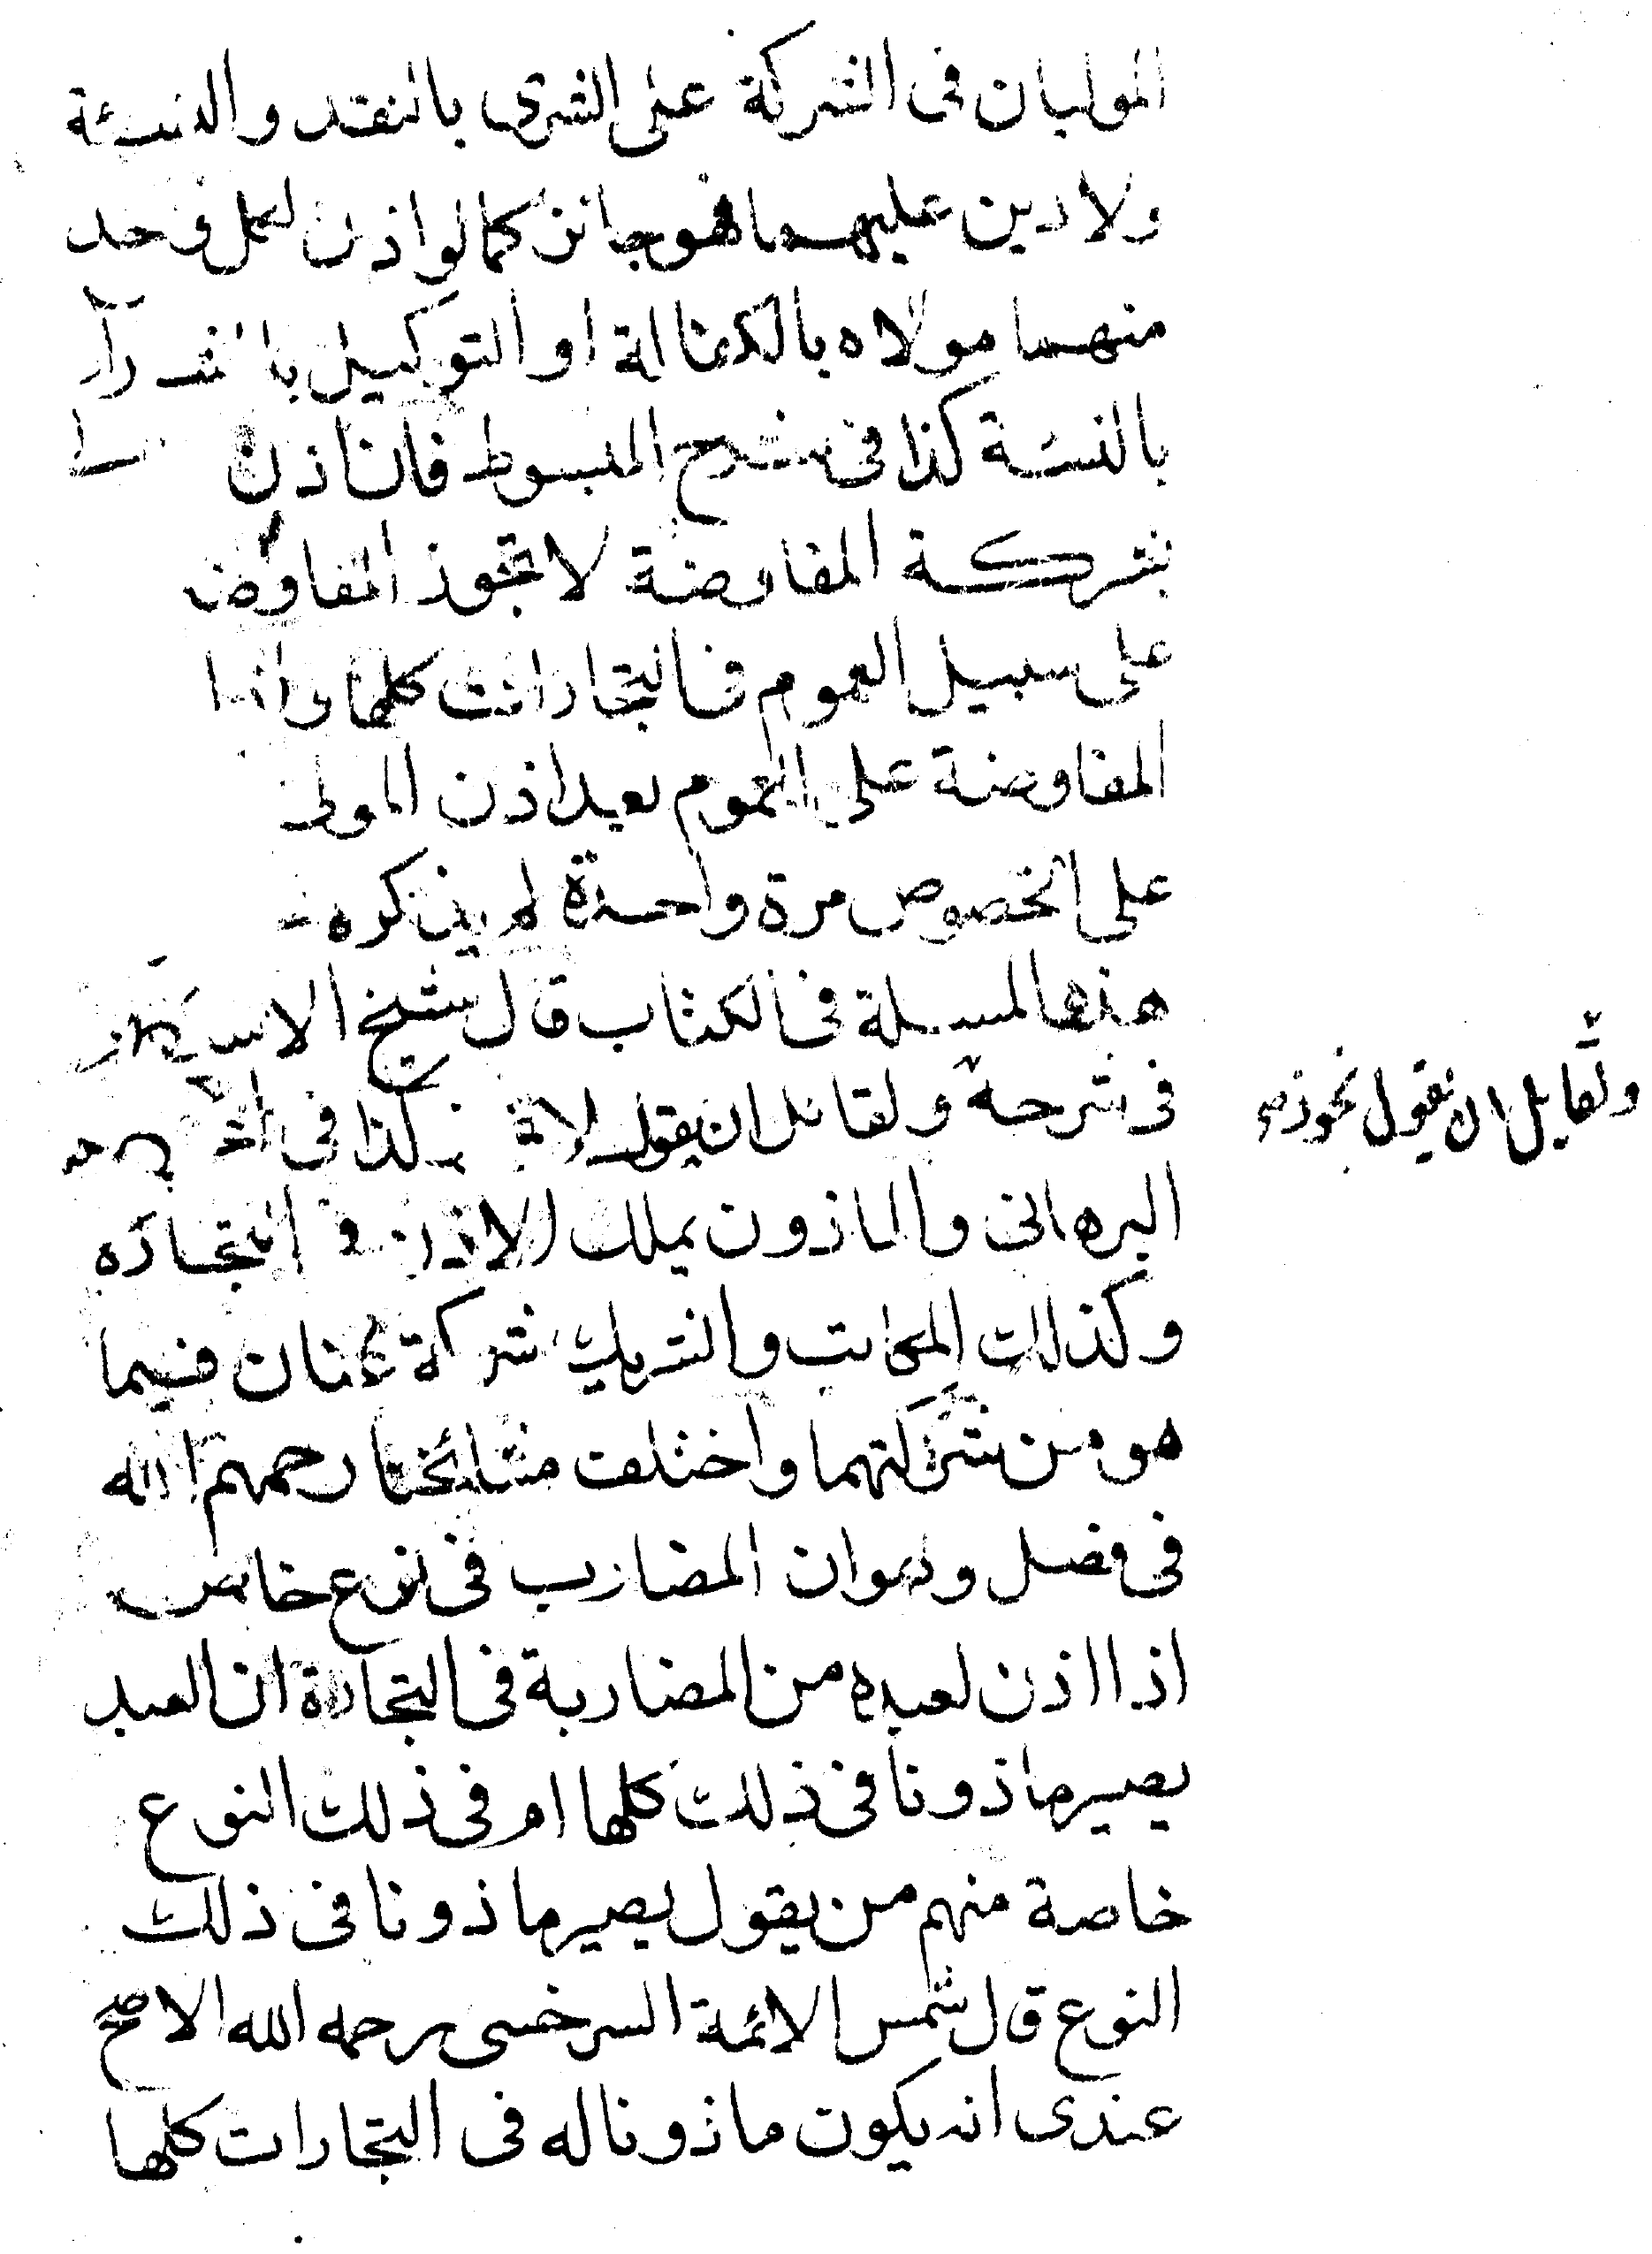 الموليان فى الشركة على الشرى بالنقد والنسئة
ولا دين عليهما فهو جائز كما لو اذن لكل وحد
منهما مولاه بالكفالة او التوكيل بالشراء
بالنسئة كذا فى شرح المبسوط فان اذن
بشركة المفاوضة لا تجوذ المفاوض
على سبيل العموم فى التجارات كلها واما
المفاوضة على العموم بعد اذن المولى
على الخصوص مرة واحدة لم يذكره
هذه المسلة فى الكتاب قال شيخ الاس
فى شرحه ولقائل ان يقول لانه كذا فى
ولقايل ان يقول تجوذ
البرهانى والماذون يملك الاذن فى التجاره
وكذلك المكاتب والشريك شركة عنان فيما
هو من شركتهما واختلف مشائخنا رحمهم الله
فى فصل وهو ان المضارب فى نوع خاص
اذا اذن لعبده من المضاربة فى التجارة ان العبد
يصير ماذونا فى ذلك كلها ام فى ذلك النوع
خاصة منهم من يقول يصير ماذونا فى ذلك
النوع قال شمس الائمة السرخسى رحمه الله الاصح
عندى انه يكون ماذونا له فى التجارات كلها